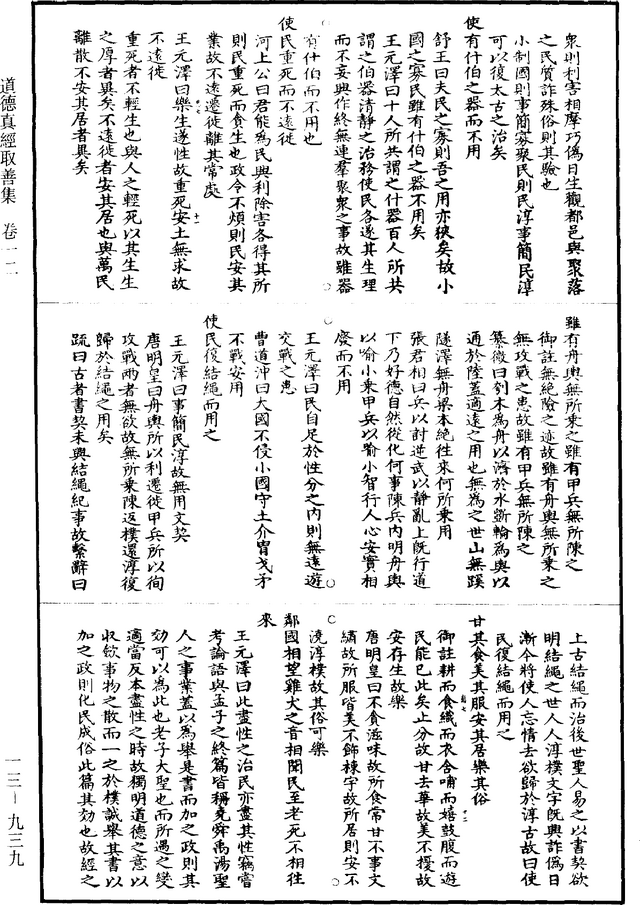 衆則利害相摩巧偽日生觀都邑與聚落
之民質詐殊俗則其驗也
小制國則事簡寡聚民則民淳事簡民淳
可以復太古之治矣
使有什伯之器而不用
舒王曰夫民之寡則吾之用亦狹矣故小
國之寡民雖有什伯之器不用矣
王元澤曰十人所共謂之什器百人所共
謂之伯器清靜之治務使民各遂其生理
而不妄興作終無連羣聚衆之事故雖器
有什伯而不用也
使民重死而不遠徙
河上公曰君能為民興利除害各得其所
則民重死而貪生也政令不煩則民安其
業故不遠遷徙離其常處
王元澤曰樂生遂性故重死安土無求故
不遠徙
重死者不輕生也與人之輕死以其生生
之厚者異矣不遠徙者安其居也與萬民
離散不安其居者異矣
雖有舟輿無所乘之雖有甲兵無所陳之
御註無絕險之迹故雖有舟輿無所乘之
無攻戰之患故雖有甲兵無所陳之
纂微曰刳木為舟以濟於水斲輪為輿以
通於陸蓋適遠之用也無為之世山無蹊
隧澤無舟梁本絕往來何所乘用
張君相曰兵以討逆武以靜亂上既行道
下乃好德自然從化何事陳兵內明舟輿
以喻小乘甲兵以喻小智行人心安實相
廢而不用
王元澤曰民自足於性分之內則無遠遊
交戰之患
曹道沖曰大國不侵小國守土介冑戈矛
不戰安用
使民復結繩而用之
王元澤曰事簡民淳故無用文契
唐明皇曰舟輿所以利遷徙甲兵所以徇
攻戰兩者無欲故無所乘陳返樸還淳復
歸於結繩之用矣
疏曰古者書契未興結繩紀事故繫辭曰
上古結繩而治後世聖人易之以書契欲
明結繩之世人人淳樸文字既興詐偽日
漸今將使人忘情去欲歸於淳古故曰使
民復結繩而用之
甘其食美其服安其居樂其俗
御註耕而食織而衣含哺而嬉鼓腹而遊
民能已此矣止分故甘去華故美不擾故
安存生故樂
唐明皇曰不食滋味故所食常甘不事文
繡故所服皆美不飾棟宇故所居則安不
澆淳樸故其俗可樂
鄰國相望雞犬之音相聞民至老死不相往
來
王元澤曰此盡性之治民亦盡其性竊嘗
考論語與孟子之終篇皆稱堯舜禹湯聖
人之事業蓋以為舉是書而加之政則其
効可以為此也老子大聖也而所遇之變
適當反本盡性之時故獨明道德之意以
收歛事物之散而一之於樸誠舉其書以
加之政則化民成俗此篇其効也故經之
道德真經取善集　卷一二
一三—九三九